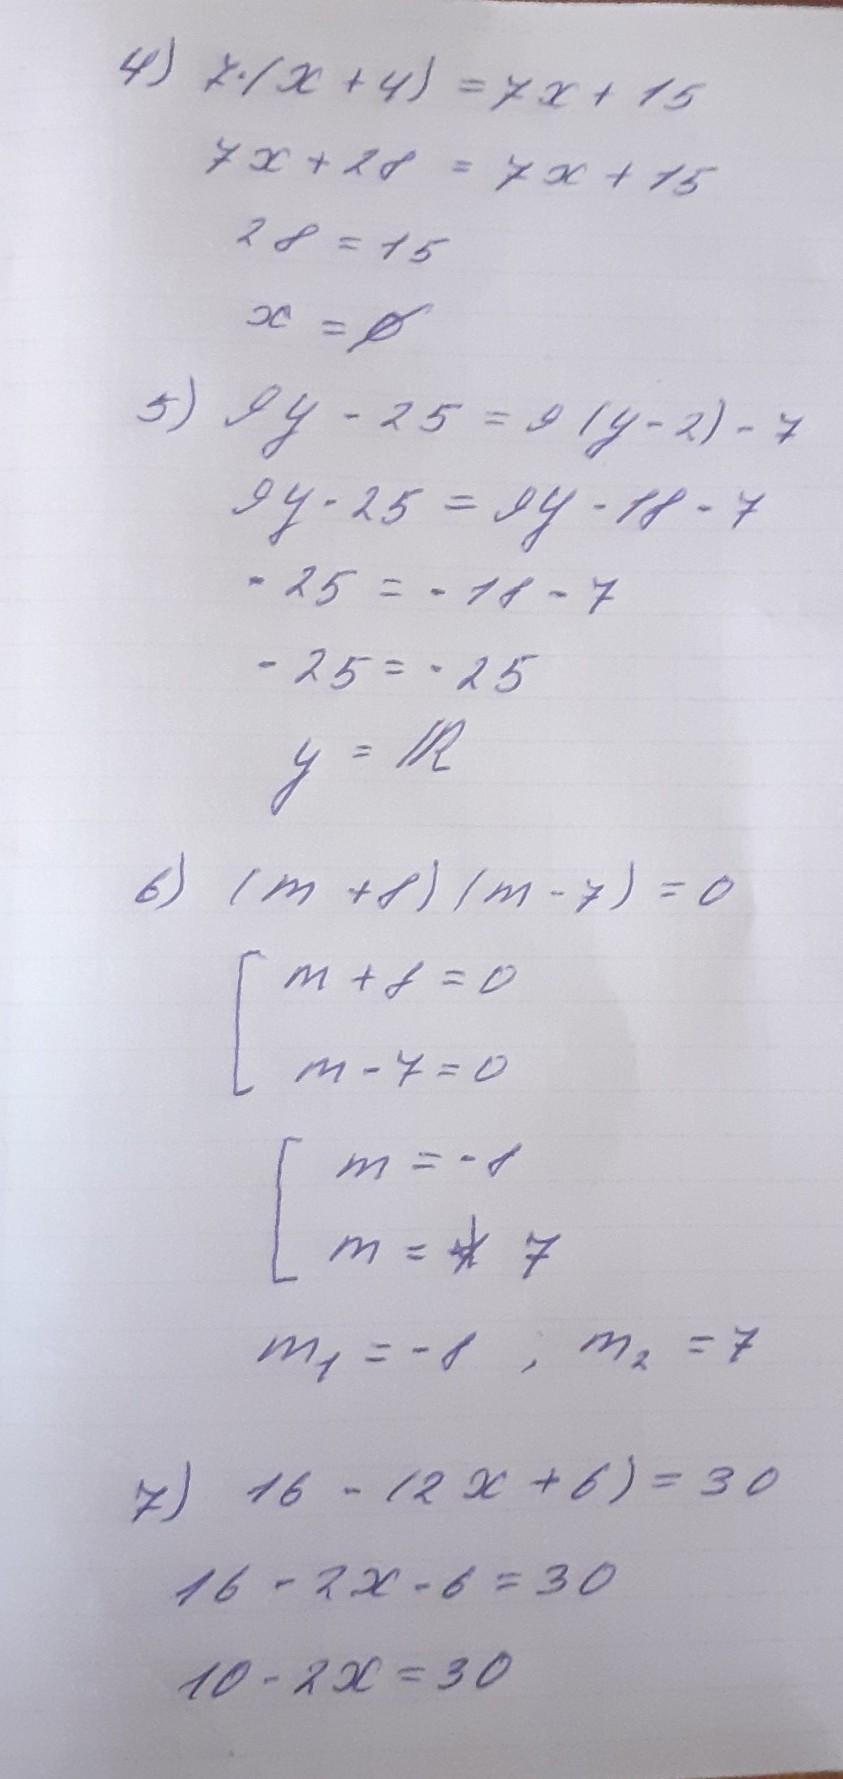 4) 7·(x + 4) = 7x + 15
7x + 28 = 7x + 15
28 = 15
x = ∅
5) 9y - 25 = 9(y - 2) - 7
9y - 25 = 9y - 18 - 7
- 25 = - 18 - 7
- 25 = - 25
y = ℝ
6) (m + 8)(m - 7) = 0
[ m + 8 = 0
m - 7 = 0
[ m = - 8
m = 7
m₁ = - 8 , m₂ = 7
7) 16 - (2x + 6) = 30
16 - 2x - 6 = 30
10 - 2x = 30